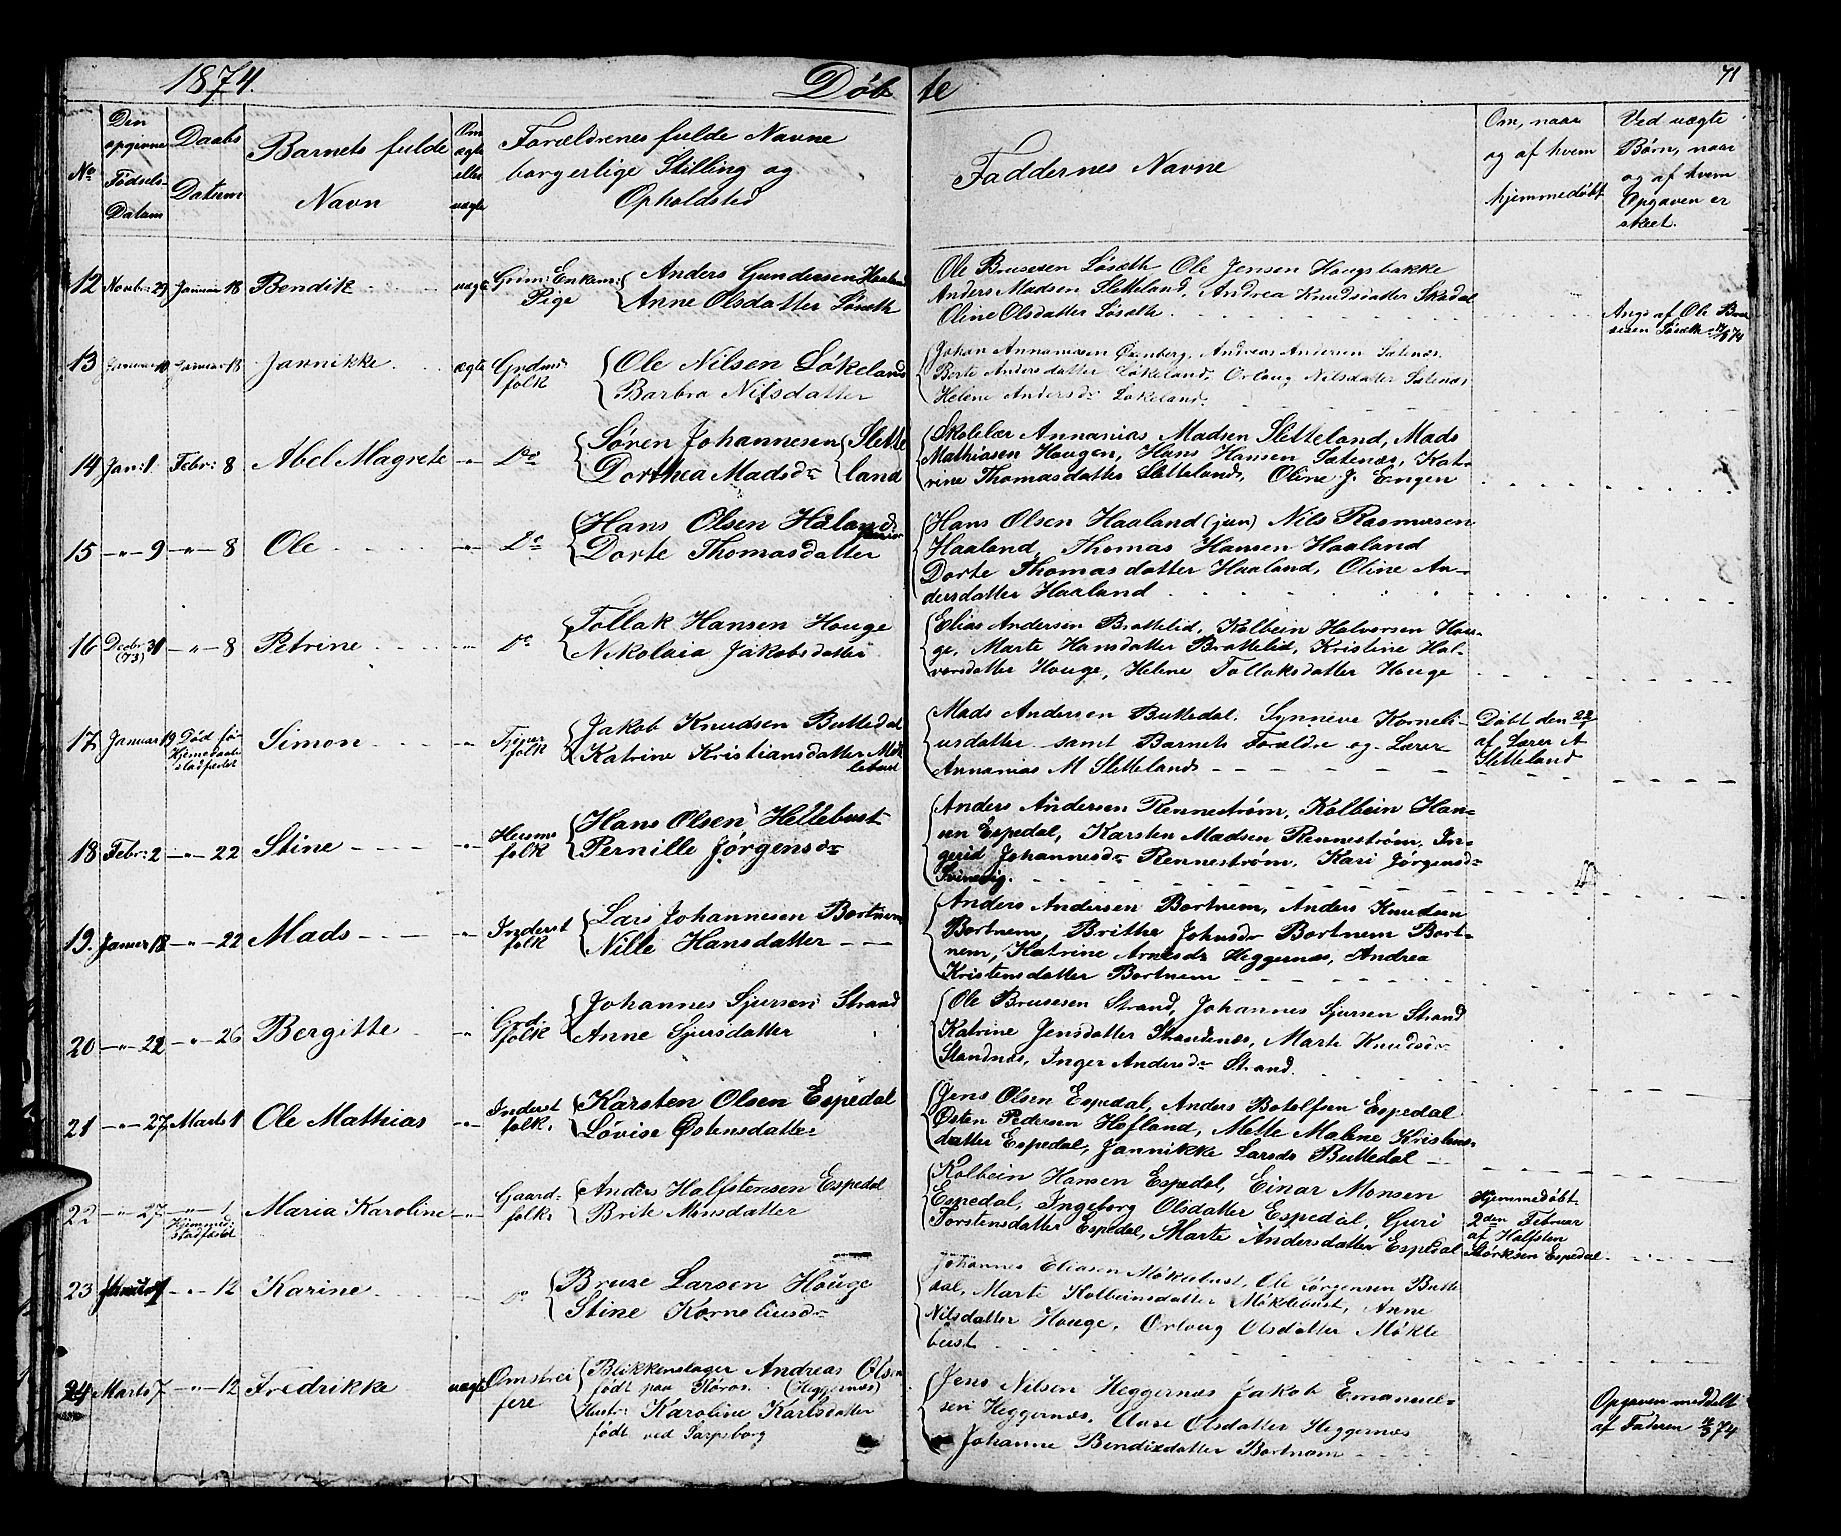 1874.
Døbte
71
No
Den opgivne Fødsels-Datum
Daabs Datum
Barnets fulde Navn
Om ægte eller uægte
Forældrenes fulde Navne borgerlige Stilling og Opholdsted
Faddernes Navne
Om, naar og af hvem hjemmedøbt
Ved uægte Børn, naar og af hvem Opgaven er skeet.
12 Novbr: 29 Januar 18 Bendik uægte Pige Anders Gundersen
Anne Olsdatter Løseth
Ole Brusesen Løseth Ole Jensen Haugsbakke
Anders Madsen Sletteland, Andrea Knudsdatter Skadal
Oline Olsdatter Løseth
Ang: af Ole Bru
sesen Løseth
13 Januar 10 Januar 18 Jannikke ægte Grdm: folk Ole Nilsen Løkeland
Barbra Nilsdatter
Johan Annaniasen Ørenberg, Andreas Andersen Sætenæs
Berte Andersdatter Løkeland, Orloug Nilsdatter Sætenæs
Helene Andersd: Løkeland
14 Jan: 1. Febr: 8 Abel Magrete -"- Do Søren Johannesen Slette
Dorthea Madsdr land
Skolelær Annanias Madsen Sletteland, Mads
Mathiasen Haugen, Hans Hansen Sætenæs, Kat-
rine Thomasdatter Sletteland, Oline J. Engen
15 -"- 9 -"- 8 Ole -"- Do Hans Olsen Håland
Dorte Thomasdatter
Hans Olsen Haaland (jun) Nils Rasmusen
Haaland, Thomas Hansen Haaland
Dorte Thomasdatter Haaland, Oline An-
dersdatter Haaland
16 Decbr 31 (73) -"- 8 Petrine -"- Do Tollak Hansen Houge
Nikolaia Jakobsdatter
Elias Andersen Brattelid, Kolbein Halvorsen Hou-
ge, Marte Hansdatter Brattelid, Kristine Hal-
vorsdatter Houge, Helene Tollaksdatter Houge
17 Januar 19 Død før Hjemedaab stadfæstet Simon -"- folk Jakob Knudsen Buttedal
Katrine Kristiansdatter Møk
lebust
Mads Andersen Buttedal. Synneve Korneli-
usdatter samt Barnets Forældre og Lærer
Annanias M Sletteland
Døbt den 22/1
af Lærer A
Sletteland
18 Febr: 2 -"- 22 Stine -"- Husms folk Hans Olsen Hellebust
Pernille Jørgensdr
Anders Andersen Rennestrøm, Kolbein Han-
sen Espedal, Karsten Madsen Rennestrøm, In-
gerid Johannesdr Rennestrøm, Kari Jørgensdr
Svinevig.
19. Januar 18 -"- 22 Mads -"- Inderst folk Lars Johannesen Bortnem
Nille Hansdatter
Anders Andersen Bortnem, Anders Knudsen
Bortnem, Brithe Johnsdr Bortnem Bort-
nem, Katrine Arnesdr Heggernæs, Andrea
Kristensdatter Bortnem
20 -"- 22 -"- 26 Bergitte -"- Grd. folk Johannes Sjursen Strand
Anne Sjursdatter
Ole Brusesen Strand, Johannes Sjursen Strand
Katrine Jensdatter Strandenæs, Marte Knudsdr
Standnæs, Inger Andersdr Strand.
21 -"- 27 Marts 1 Ole Mathias -"- Inderst folk. Karsten Olsen Espedal
Lovise Østensdatter
Jens Olsen Espedal, Anders Botolfsen Espedal
Østen Pedersen Hofland, Mette Malene Kristens-
datter Espedal, Jannikke Larsdr Buttedal
22 -"- 27 -"- 1 Hjemmed: stadfæstet Maria Karoline -"- Gaard- folk: Anders Halfstensen Espedal
Brite Monsdatter
Kolbein Hansen Espedal, Einar Monsen
Espedal, Ingeborg Olsdatter Espedal, Guri
Torstensdatter Espedal, Marte Andersdatter Espedal
Hjemmedøbt
2den Februar
af Halfsten
Størksen Espedal
23 -"- 12 Karine Do Bruse Larsen Houge
Stine Korneliusdr
Johannes Eliasen Møklebust, Ole Jørgensen Butte
dal, Marte Kolbeinsdatter Møklebust, Anne
Nilsdatter Houge, Orloug Olsdatter Møkle
bust
24 Marts 7 -"- 12 Fredrikke uægte Omstrei fere Blikkenslager Andreas Olsen
født paa Røros. (Heggernæs)
Hustr: Karoline Karlsdatter
født ved Sarpsborg
Jens Nilsen Heggernæs Jakob Emanuel-
sen Heggernæs, Anne Olsdatter Heggernæs
Johanne Bendixdatter Bortnem
Opgaven meddelt
af Faderen